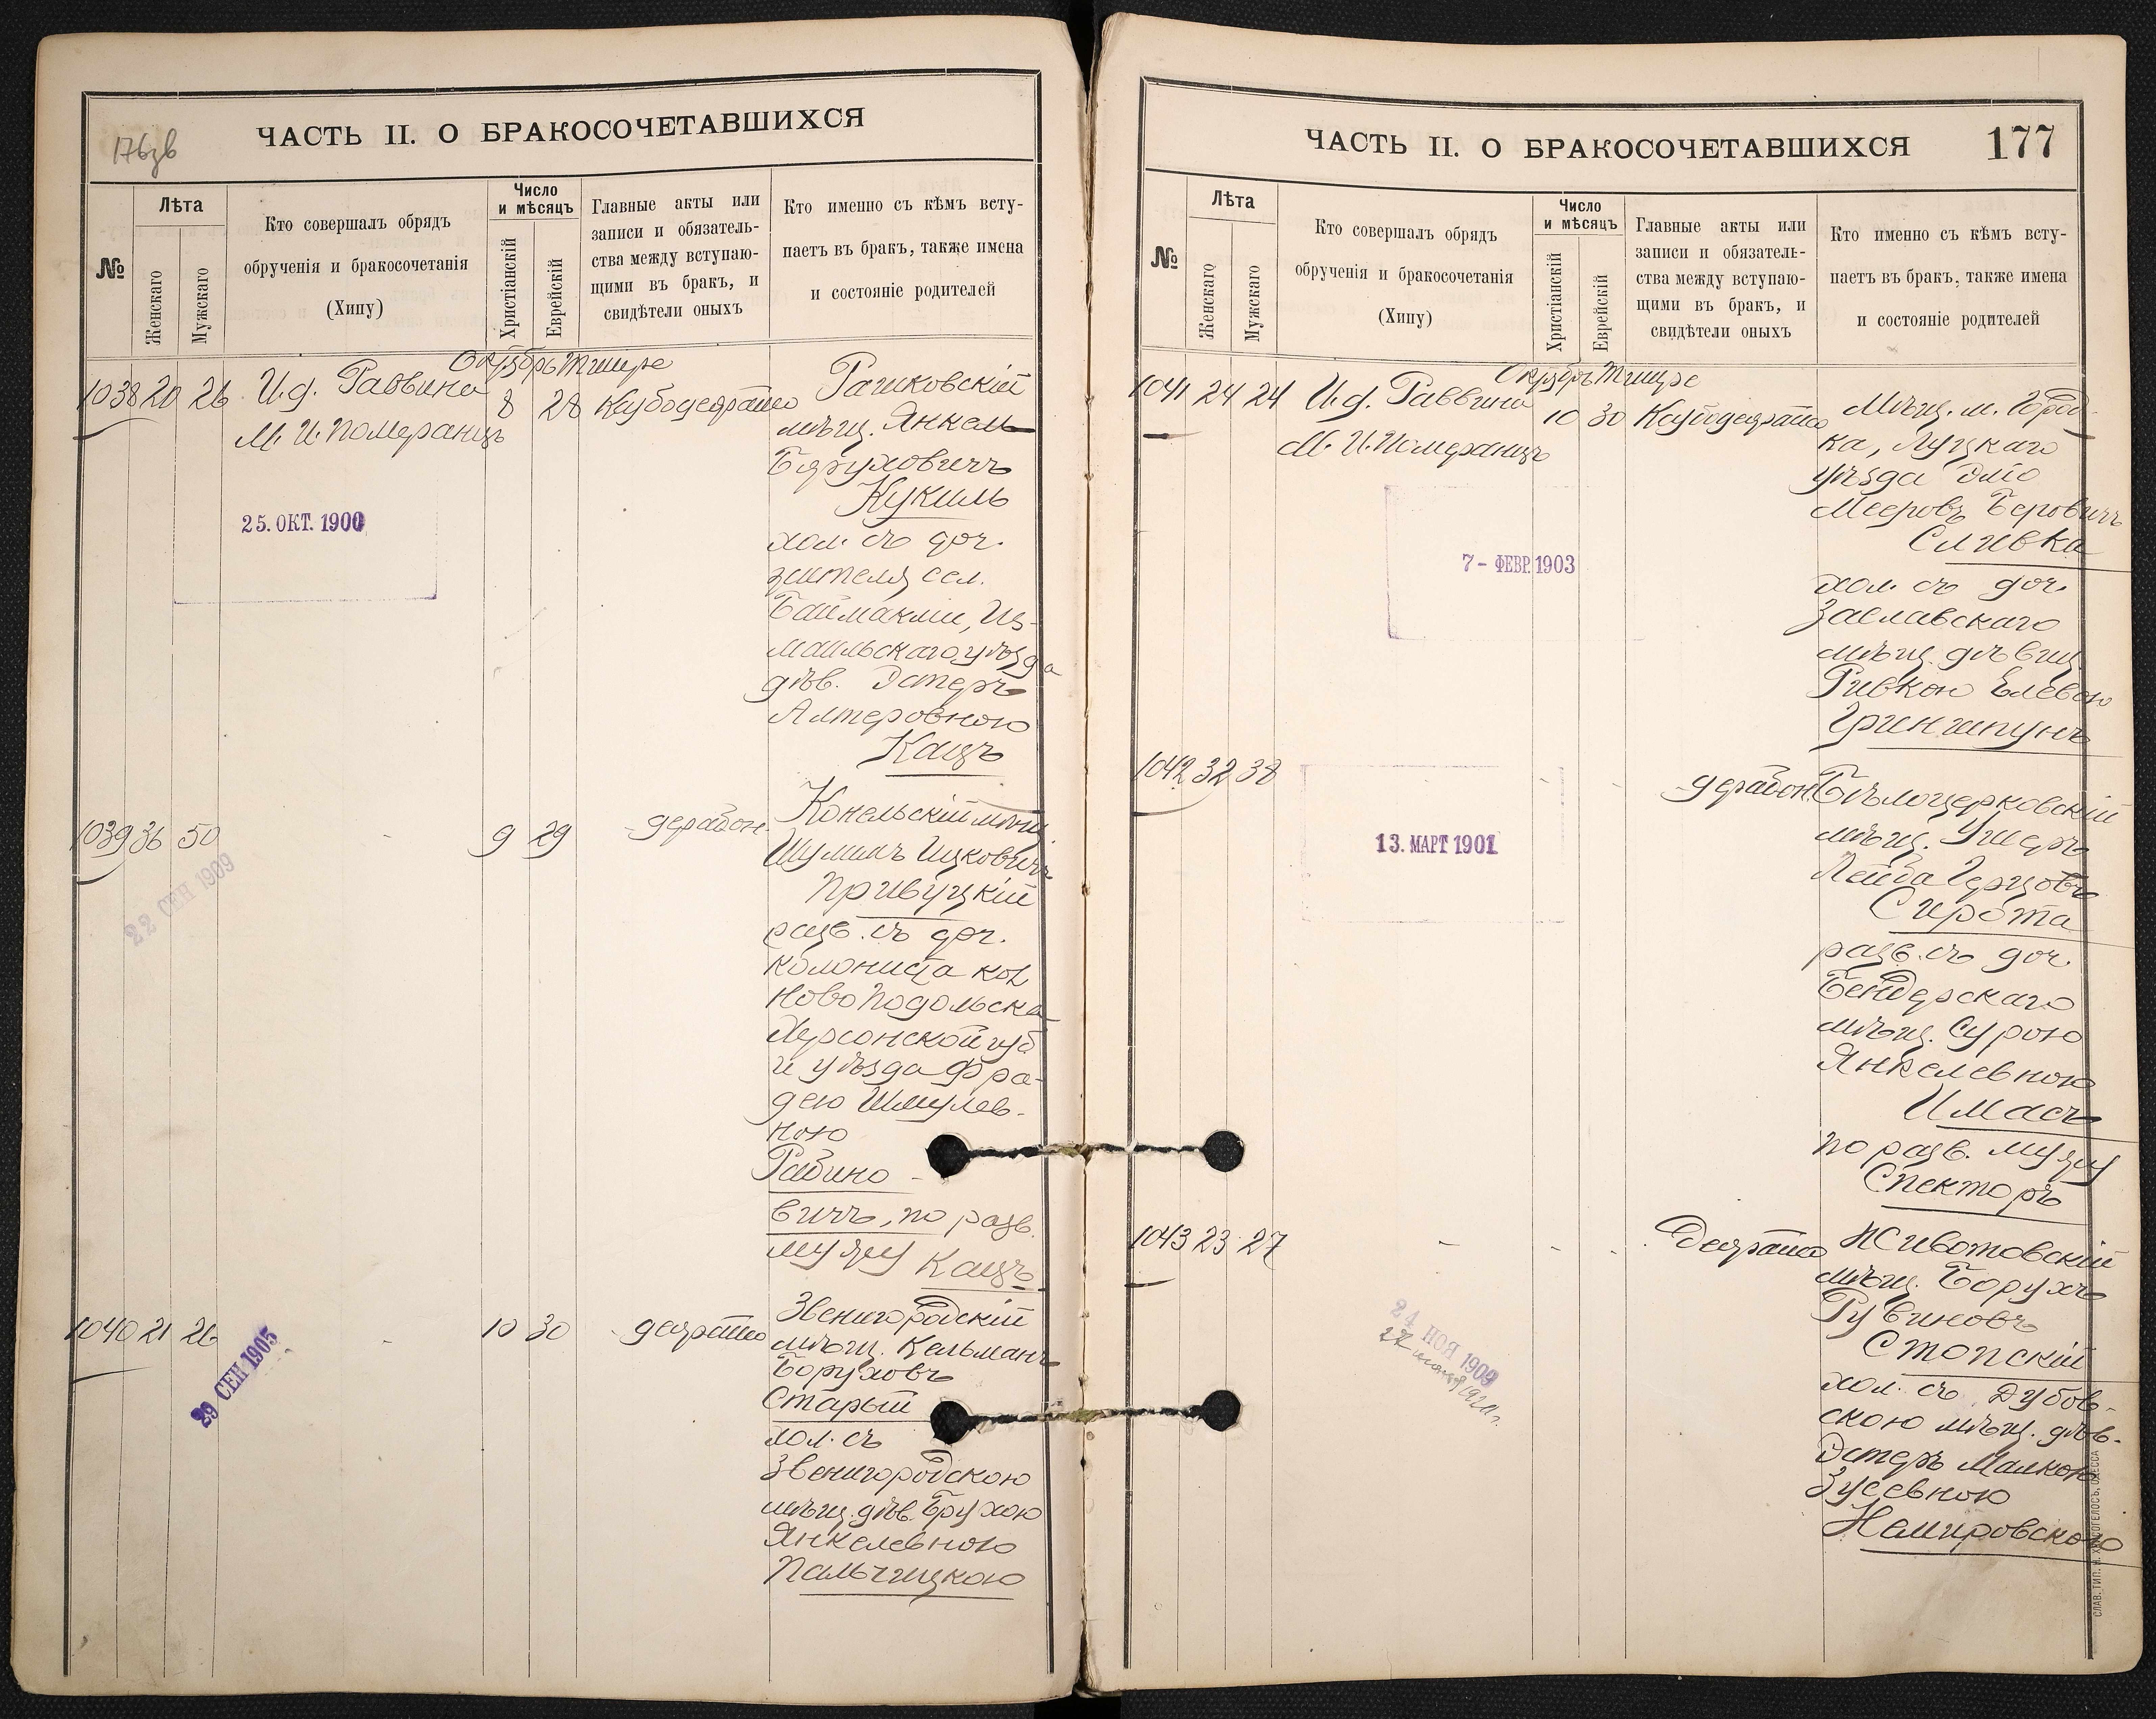 176зв
ЧАСТЬ II. О БРАКОСОЧЕТАВШИХСЯ
№
Лѣта
Женскаго
Мужскаго
Кто совершалъ обрядъ
обрученія и бракосочетанія
(Хипу)
Число
и мѣсяцъ
Христіанскій
Еврейскій
Главные акты или
записи и обязатель-
ства между вступаю-
щими въ бракъ, и
свидѣтели оныхъ
Кто именно съ кѣмъ всту-
паетъ въ бракъ, также имена
и состояніе родителей
Октябрь Тишре
1038 20 26 И.д. Раввина
М. И. Померанцъ
8 28
25. ОКТ. 1900
Рашковскій
мѣщ. Янкель
Боруховичъ
Кукиль
хол. съ доч.
жителя сел.
Баймаклии, Из-
маильскаго уѣзда
дѣв. Эстеръ
Алтеровною
Кацъ
1039 36 50
9 29
22 СЕН 1909
Конельскій мѣщ.
Шулимъ Ицковичъ
Привуцкій
разв. съ доч.
колониста кол.
Новоподольска
Херсонской губ
и уѣзда Фра-
дею Шмулев-
ною
Рабино-
вичъ, по разв.
мужу Кацъ
1040 21 26 - 10 30
29 СЕН 1905
Звенигородскій
мѣщ. Кельманъ
Боруховъ
Старый
хол. съ
Звенигородскою
мѣщ. дѣв. Брухою
Янкелевною
Пальчицкою
ЧАСТЬ II. О БРАКОСОЧЕТАВШИХСЯ 177
№
Лѣта
Женскаго
Мужскаго
Кто совершалъ обрядъ
обрученія и бракосочетанія
(Хипу)
Число
и мѣсяцъ
Христіанскій
Еврейскій
Главные акты или
записи и обязатель-
ства между вступаю-
щими въ бракъ, и
свидѣтели оныхъ
Кто именно съ кѣмъ всту-
паетъ въ бракъ, также имена
и состояніе родителей
Октябрь Тишре
1041 24 24 И.д. Раввина
М. И. Померанцъ
10 30
7 - ФЕВР. 1903
Мѣщ. м. Город-
ка, Луцкаго
уѣзда Эліо
Мееровъ Беровичъ
Сливка
хол. съ доч.
Заславскаго
мѣщ. дѣвиц.
Ривкою Елевою
Гриншпунъ
1042 32 38
13. МАРТ 1901
Бѣлоцерковскій
мѣщ. Ушеръ
Лейба Герцовъ
Сирота
разв. съ доч.
Бендерскаго
мѣщ. Сурою
Янкелевною
Имасъ
по разв. мужу
Спекторъ
1043 23 27
24 НОЯ 1909
Животовскій
мѣщ. Борухъ
Рувиновъ
Стопскій
хол. съ Дубов-
скою мѣщ. дѣв.
Эстеръ Малкою
Зусевною
Немировскою